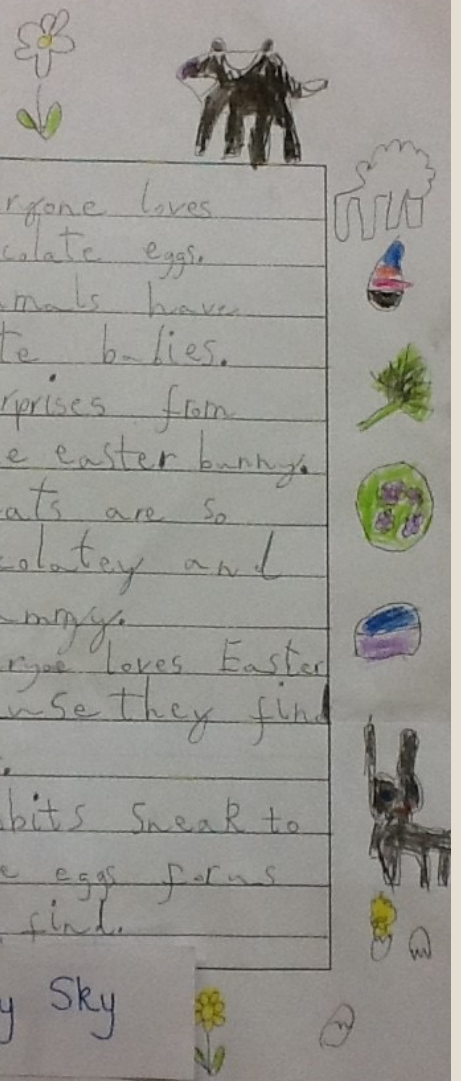 ryone loves
colate eggs.
mals have
te babies.
rprises from
e easter bunny.
ats are so
colatey and
mmy.
ryoe loves Easter
use they find
.
bits sneak to
e eggs forus
find.
y Sky